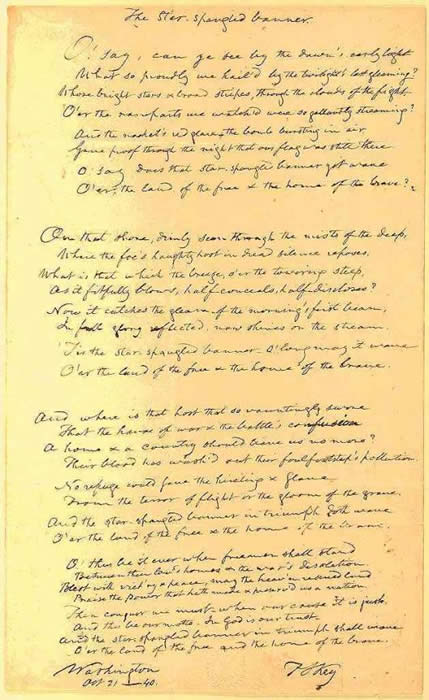 The Star-spangled banner.
O! say, can ye see by the dawn's early light
What so proudly we hail'd by the twilight's last gleaming?
Whose bright stars & broad stripes, through the clouds of the fight,
O'er the ramparts we watch'd were so gallantly streaming?
And the rocket's red glare, the bomb bursting in air
Gave proof through the night that our flag was still there
O! say, does that star-spangled banner yet wave
O'er the land of the free & the home of the brave?
On that shore, dimly seen through the mists of the deep,
Where the foe's haughty host in dread silence reposes,
What is that which the breeze, o'er the towering steep,
As it fitfully blows, half conceals, half discloses?
Now it catches the gleam of the morning's first beam,
In full glory reflected, now shines on the stream.
'Tis the star-spangled banner - O! long may it wave
O'er the land of the free & the home of the brave.
And where is that host that so vauntingly swore
That the havoc of war & the battle's confusion
A home & a country should leave us no more?
Their blood has wash'd out their foul footstep's pollution.
No refuge could save the hireling & slave
From the terror of flight or the gloom of the grave.
And the star-spangled banner in triumph doth wave
O'er the land of the free & the home of the brave.
O! thus be it ever when freemen shall stand
Between their lov'd homes & the war's desolation
Blest with vict'ry & peace, may the heav'n rescued land
Praise the power that hath made & preserv'd us a nation.
Then conquer we must, when our cause it is just,
And this be our motto, In God is our trust
And the star-spangled banner in triumph shall wave
O'er the land of the free and the home of the brave.
Washington
Oct 21 - 40.
F S Key